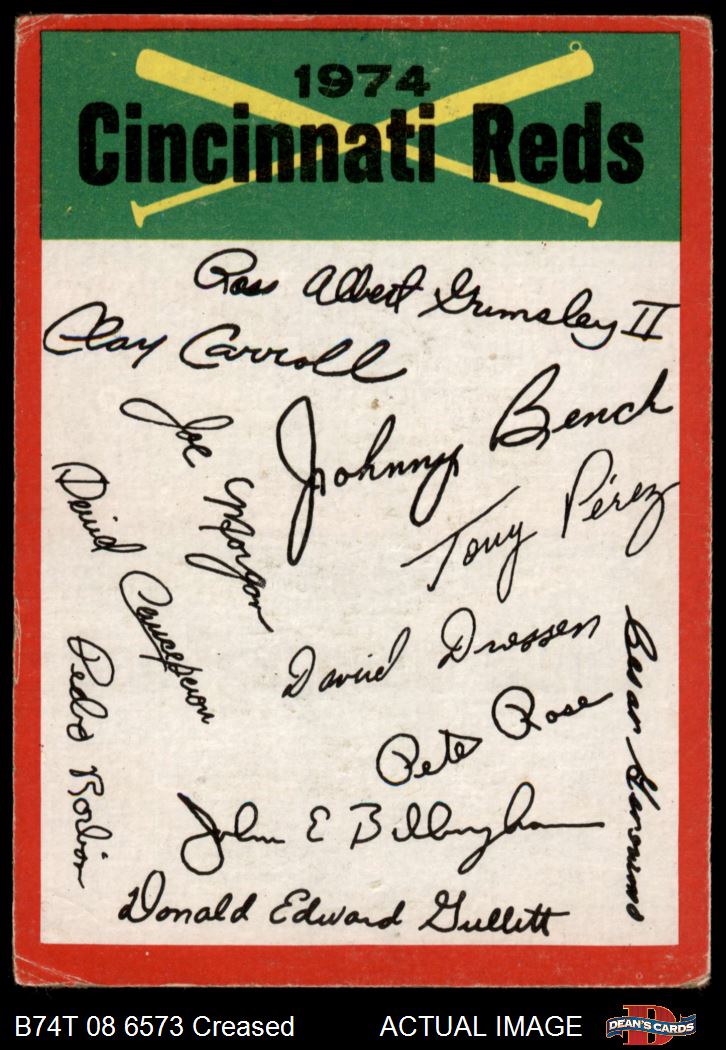 1974
Cincinnati Reds
Ross Albert Grimsley II
Clay Carroll
Johnny Bench
Joe Morgan
Tony Pérez
David Concepcion
David Driessen
Pedro Borbón
Pete Rose
Cesar Geronimo
John E Billingham
Donald Edward Gullett
B74T 08 6573 Creased
ACTUAL IMAGE
D
DEAN'S CARDS